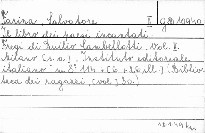 Farina, Salvatore II g B 10940
Il libro dei paesi incantati.
Fregi di Giulio Lambellotti. Vol. II.
Milano (s. a.), Istituto editoriale
italiano. 8° 114 + (6 + 26 ill.) (Biblio-
teca dei ragazzi, vol. 30.)